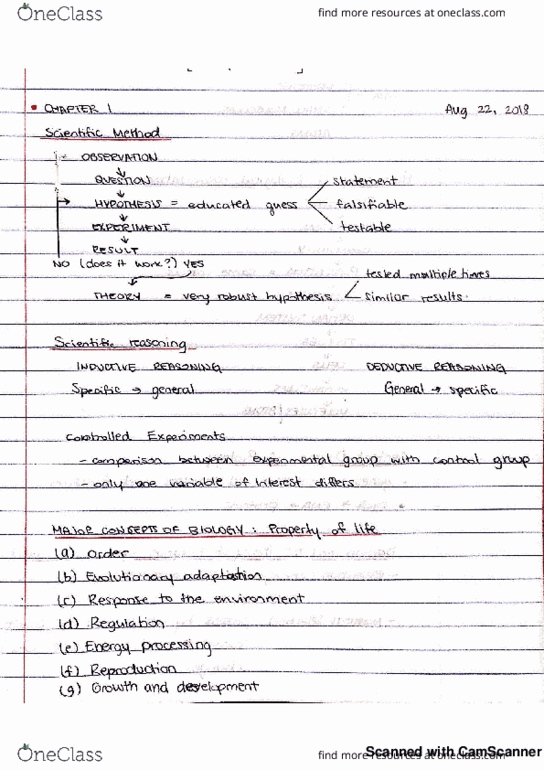 OneClass find more resources at oneclass.com
CHAPTER 1 Aug 22, 2018
Scientific Method
OBSERVATION
QUESTION statement
HYPOTHESIS = educated guess falsifiable
EXPERIMENT testable
RESULT
NO (does it work?) YES
tested multiple times
THEORY = very robust hypothesis similar results.
Scientific reasoning
INDUCTIVE REASONING DEDUCTIVE REASONING
Specific → general General → specific
Controlled Experiments
- comparison between experimental group with control group
- only one variable of interest differs
MAJOR CONCEPTS OF BIOLOGY : Property of life
(a) order
(b) Evolutionary adaptation
(c) Response to the environment
(d) Regulation
(e) Energy processing
(f) Reproduction
(g) Growth and development
OneClass find more resources at oneclass.com
Scanned with CamScanner